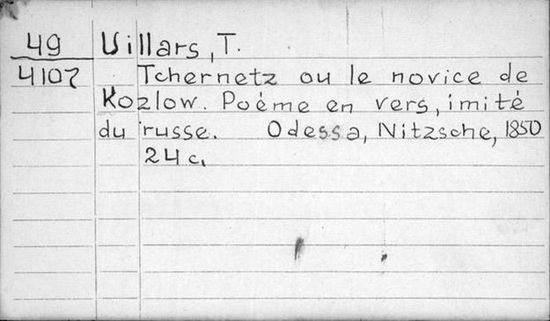 49 Villars, T.
4107 Tchernetz ou le novice de
Kozlow. Poème en vers, imité
du russe. Odessa, Nitzsche, 1850
24 c.